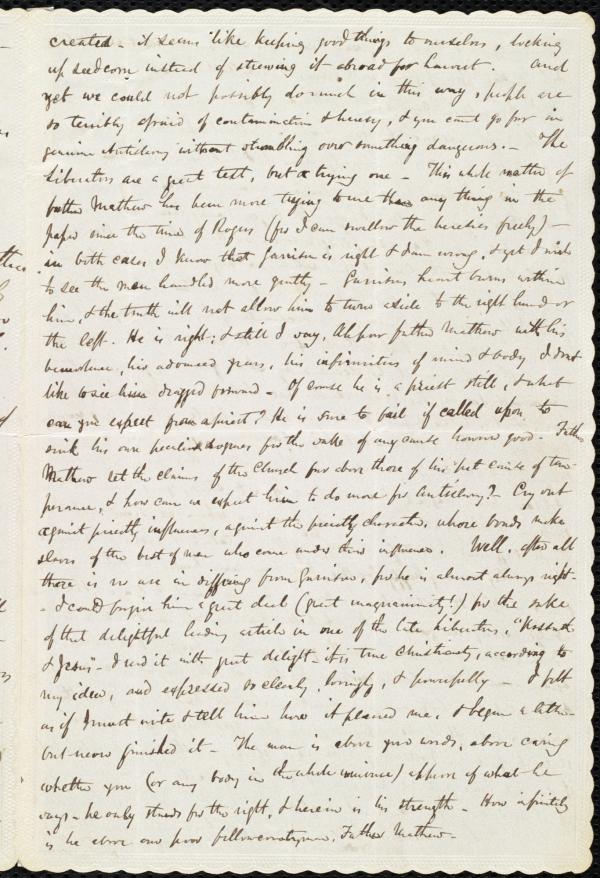 created - it seems like keeping good things to ourselves, locking
up seed corn instead of strewing it abroad for harvest. And
yet we could not possibly do much in this way, people are
so terribly afraid of contamination & heresy, & you can't go far in
genuine Antislavery without stumbling over something dangerous. - The
Liberators are a great test, but a trying one - This whole matter of
father Mathew has been more trying to me than any thing in the
paper since the time of Rogers (for I can swallow the heresies freely) -
in both cases I know that Garrison is right & I am wrong, & yet I wish
to see the man handled more gently - Garrison's heart burns within
him, & the truth will not allow him to turn aside to the right hand or
the left. He is right; & still I say, Ah poor father Mathew with his
benevolence, his advanced years, his infirmities of mind & body I don't
like to see him dragged forward - Of course he is a priest still, & what
can you expect from a priest? He is sure to fail if called upon to
sink his own peculiar dogmas for the sake of any cause however good - Father
Mathew set the claims of the Church far above those of his pet cause of tem-
perance, & how can we expect him to do more for Antislavery? - Cry out
against priestly influences, against the priestly character, whose bonds make
slaves of the best of men who come under their influences. Well, after all
there is no use in differing from Garrison, for he is almost always right -
- I could forgive him a great deal (great magnanimity!) for the sake
of that delightful leading article in one of the late Liberators, "Kossuth
& Jesus" - I read it with great delight - it is true Christianity, according to
my idea, and expressed so clearly, lovingly, & powerfully - I felt
as if I must write & tell him how it pleased me, & began a letter
but never finished it - The man is above your words, above caring
whether you (or any body in the whole universe) approve of what he
says - he only stands for the right, & herein is his strength - How infinitely
is he above our poor fellowcountryman, Father Mathew -